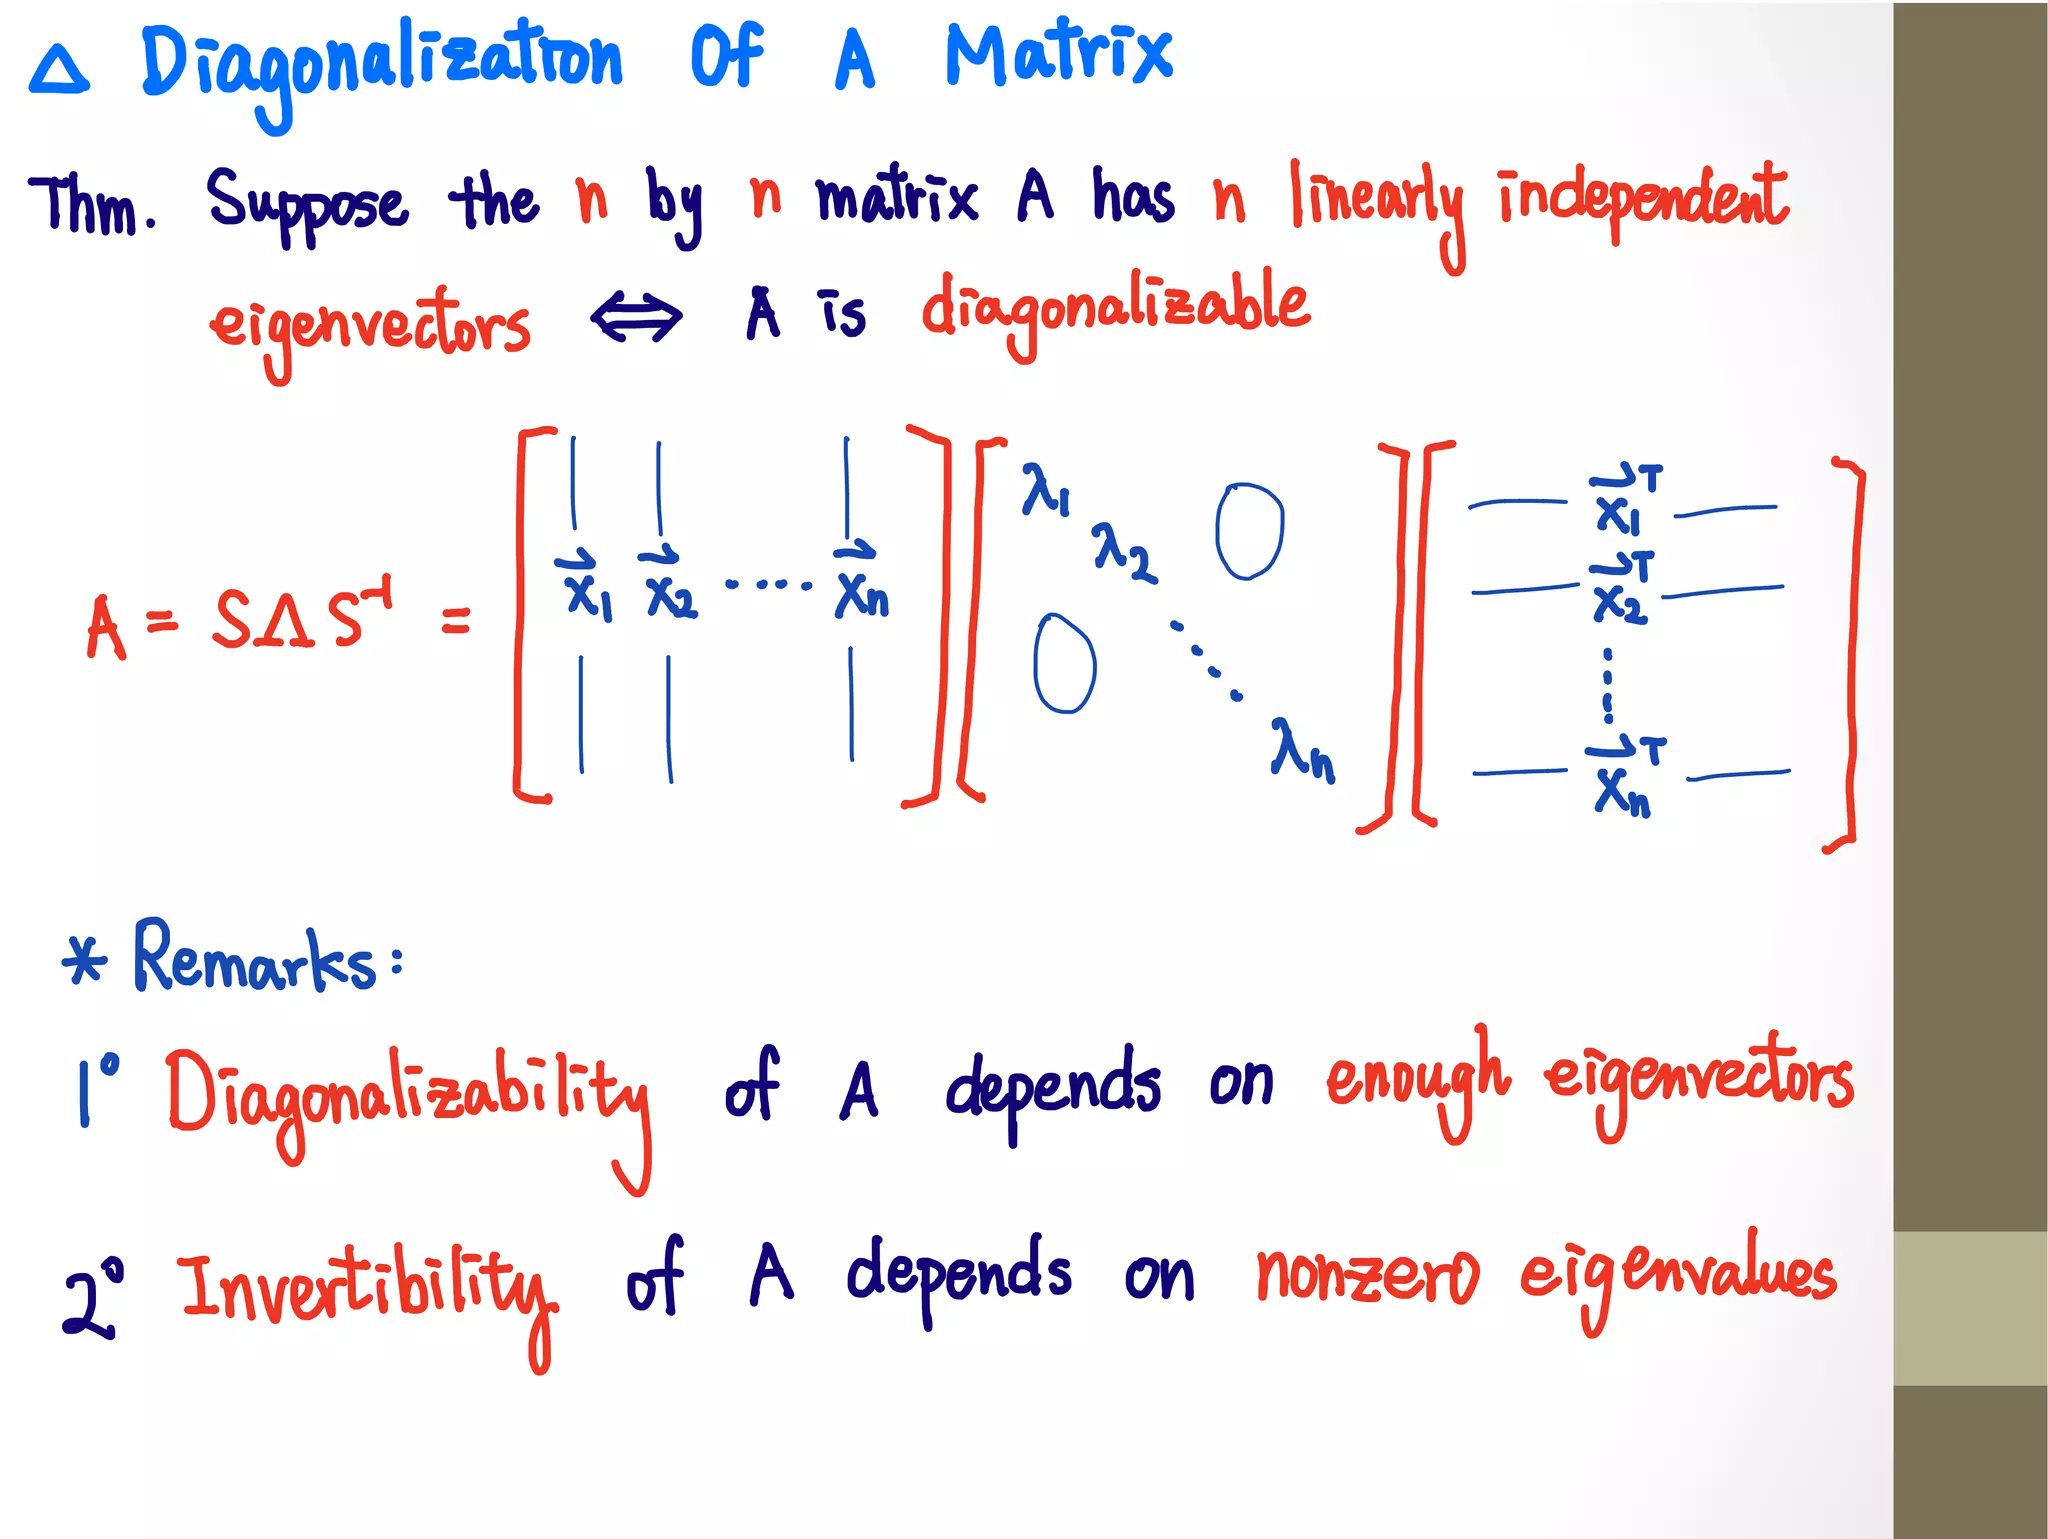 △ Diagonalization Of A Matrix
Thm. Suppose the n by n matrix A has n linearly independent
eigenvectors ⇔ A is diagonalizable
A = SΛS⁻¹ = [x⃗₁ x⃗₂ ····· x⃗n] [λ₁ λ₂ ··· λn 0 0] [x⃗₁ᵀ x⃗₂ᵀ ····· x⃗nᵀ]
* Remarks:
1° Diagonalizability of A depends on enough eigenvectors
2° Invertibility of A depends on nonzero eigenvalues